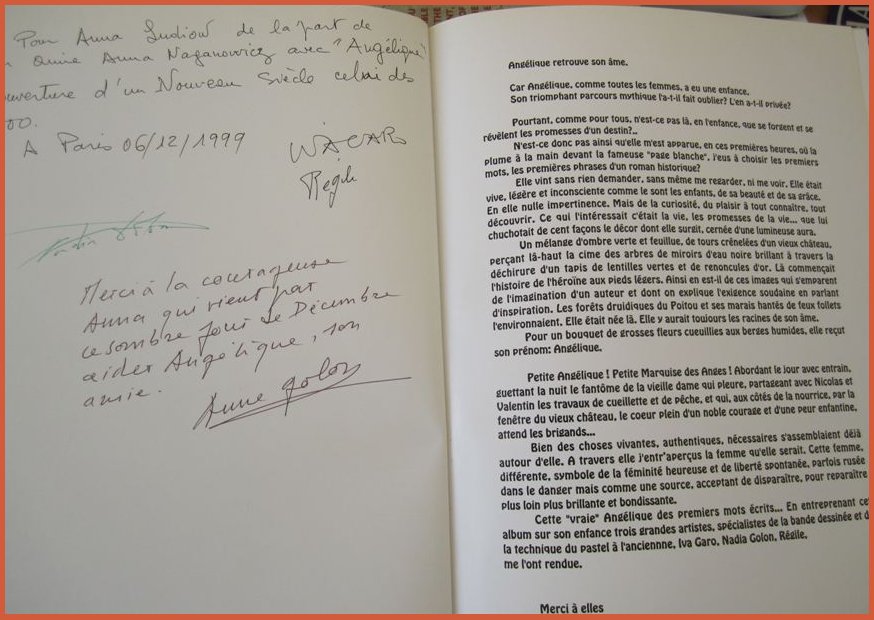 Pour Anna Ludiow de la part de
Anna Naganowicz avec "Angélique"
ouverture d'un Nouveau Siècle celui des
A Paris 06/12/1999
Régile
Merci à la courageuse
Anna qui vient par
ce sombre jour de Décembre
aider Angélique, son
amie.
Anne Golon
Angélique retrouve son âme.
Car Angélique, comme toutes les femmes, a eu une enfance.
Son triomphant parcours mythique l'a-t-il fait oublier? L'en a-t-il privée?
Pourtant, comme pour tous, n'est-ce pas là, en l'enfance, que se forgent et se
révèlent les promesses d'un destin?..
N'est-ce donc pas ainsi qu'elle m'est apparue, en ces premières heures, où la
plume à la main devant la fameuse "page blanche", j'eus à choisir les premiers
mots, les premières phrases d'un roman historique?
Elle vint sans rien demander, sans même me regarder, ni me voir. Elle était
vive, légère et inconsciente comme le sont les enfants, de sa beauté et de sa grâce.
En elle nulle impertinence. Mais de la curiosité, du plaisir à tout connaître, tout
découvrir. Ce qui l'intéressait c'était la vie, les promesses de la vie... que lui
chuchotait de cent façons le décor dont elle surgit, cernée d'une lumineuse aura.
Un mélange d'ombre verte et feuillue, de tours crênelées d'un vieux château,
perçant là-haut la cime des arbres de miroirs d'eau noire brillant à travers la
déchirure d'un tapis de lentilles vertes et de renoncules d'or. Là commençait
l'histoire de l'héroïne aux pieds légers. Ainsi en est-il de ces images qui s'emparent
de l'imagination d'un auteur et dont on explique l'exigence soudaine en parlant
d'inspiration. Les forêts druidiques du Poitou et ses marais hantés de feux follets
l'environnaient. Elle était née là. Elle y aurait toujours les racines de son âme.
Pour un bouquet de grosses fleurs cueuillies aux berges humides, elle reçut
son prénom: Angélique.
Petite Angélique ! Petite Marquise des Anges ! Abordant le jour avec entrain,
guettant la nuit le fantôme de la vieille dame qui pleure, partageant avec Nicolas et
Valentin les travaux de cueillette et de pêche, et qui, aux côtés de la nourrice, par la
fenêtre du vieux château, le coeur plein d'un noble courage et d'une peur enfantine,
attend les brigands...
Bien des choses vivantes, authentiques, nécessaires s'assemblaient déjà
autour d'elle. A travers elle j'entr'aperçus la femme qu'elle serait. Cette femme,
différente, symbole de la féminité heureuse et de liberté spontanée, parfois rusée
dans le danger mais comme une source, acceptant de disparaître, pour reparaître
plus loin plus brillante et bondissante.
Cette "vraie" Angélique des premiers mots écrits... En entreprenant cet
album sur son enfance trois grandes artistes, spécialistes de la bande dessinée et d
la technique du pastel à l'anciennne, Iva Garo, Nadia Golon, Régile,
me l'ont rendue.
Merci à elles